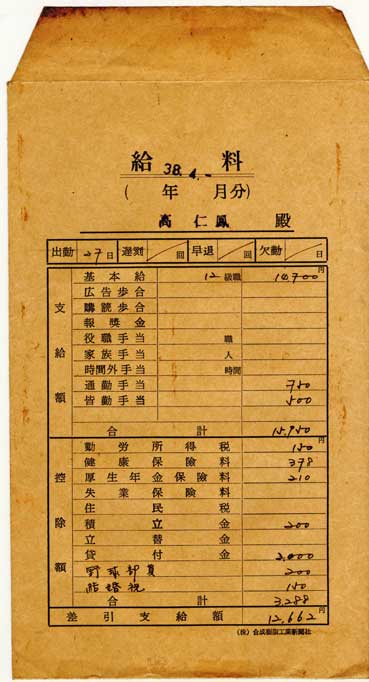 給 料
38.4.-
( 年 月分)
高 仁 鳳 殿
出勤 27日 遅刻 回 早退 回 欠勤 日
支給額
基本給 12級職 14,700円
広告歩合
購読歩合
報奨金
役職手当 職
家族手当 人
時間外手当 時間
通勤手当 750
皆勤手当 500
合計 15,950
控除額
勤労所得税 150円
健康保険料 378
厚生年金保険料 210
失業保険料
住民税
積立金 200
立替金
貸付金 2,000
野球部費 200
結婚祝 150
合計 3,288
差引支給額 12,662円
(株)合成樹脂工業新聞社